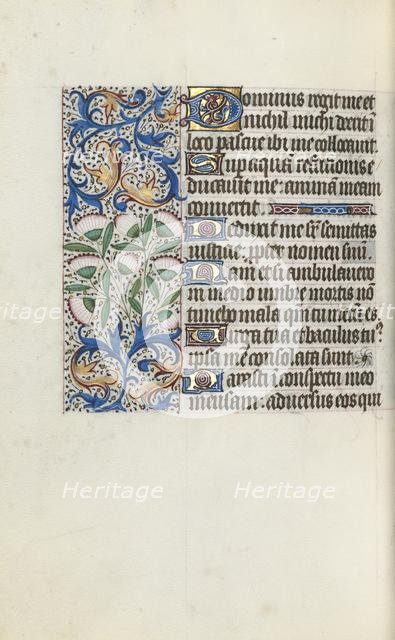 Dominus regit me et
nichil michi deerit i
loco pascue ibi me collocauit
Super aquā refectionis e
ducauit me: animā meam
conuertit
Deduxit me sr semittas
iusticie: ppter nomen suū.
Nam et si ambulauero
in medio umbre mortis nō
timebo mala: qm tu mecū es
Uirga tua et baculus tu?
ipsa me consolata sunt
Parasti i conspectu meo
mensam: aduersus eos qui
Heritage Heritage
Heritage
Heritage Heritage
Heritage Heritage